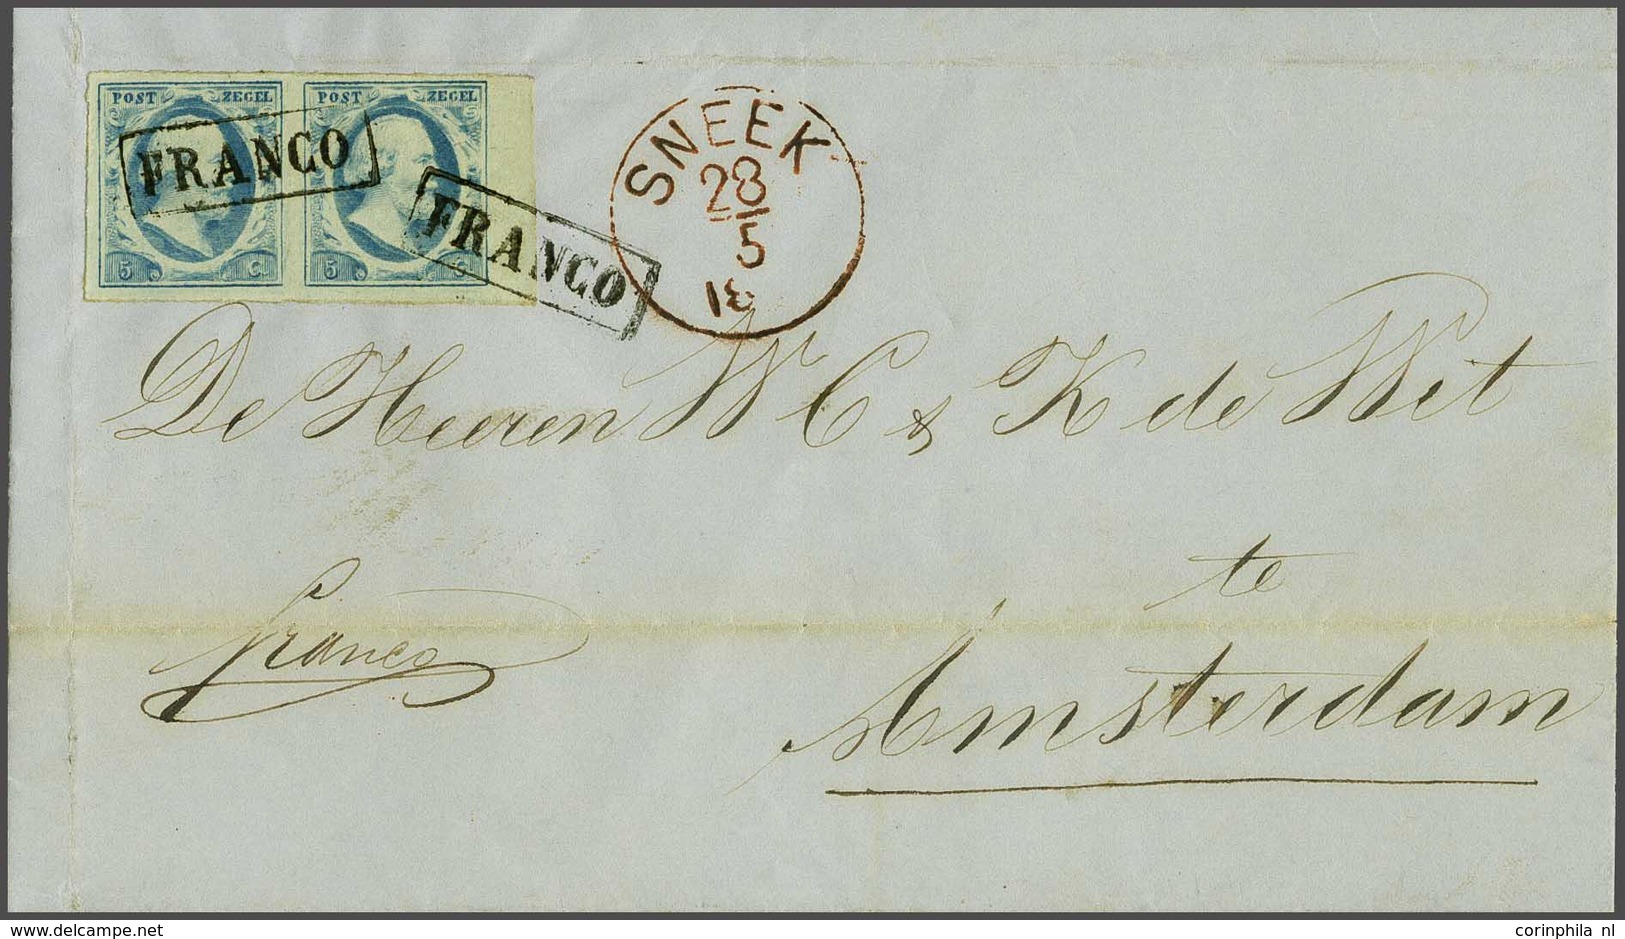 POST ZEGEL POST ZEGEL
FRANCO
FRANCO
5 C 5 C
SNEEK
28
5
De Heeren W C & K de Wit
te
franco
Amsterdam
delcampe.net
corinphila nl